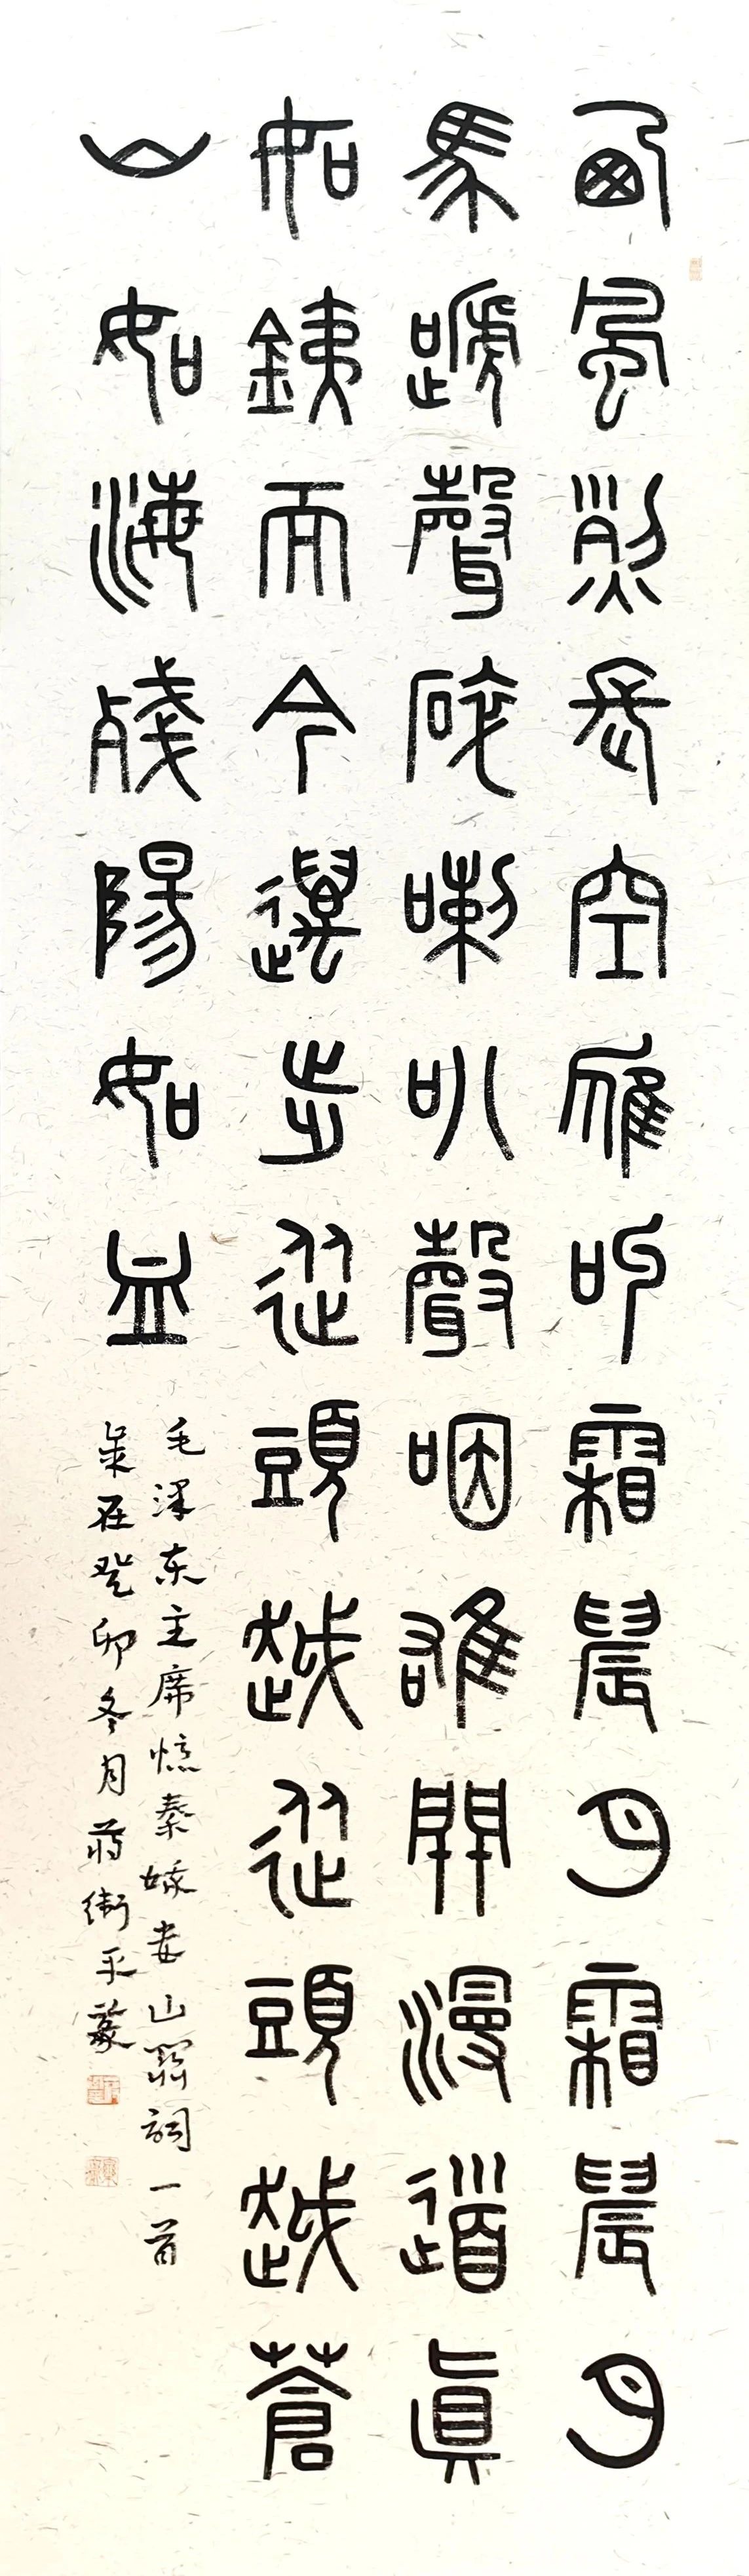 西風烈長空雁叫霜晨月霜晨月
馬蹄聲碎喇叭聲咽雄關漫道真
如銕而今邁步從頭越從頭越蒼
山如海殘陽如血
毛泽东主席憶秦娥娄山關詞一首
歲在癸卯冬月蔣衛平篆